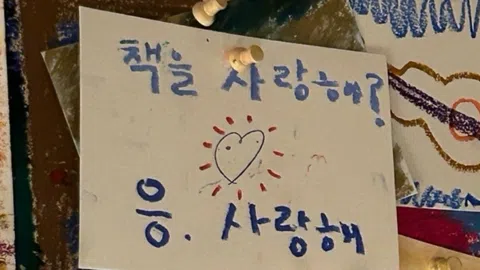 책을 사랑해?
응. 사랑해